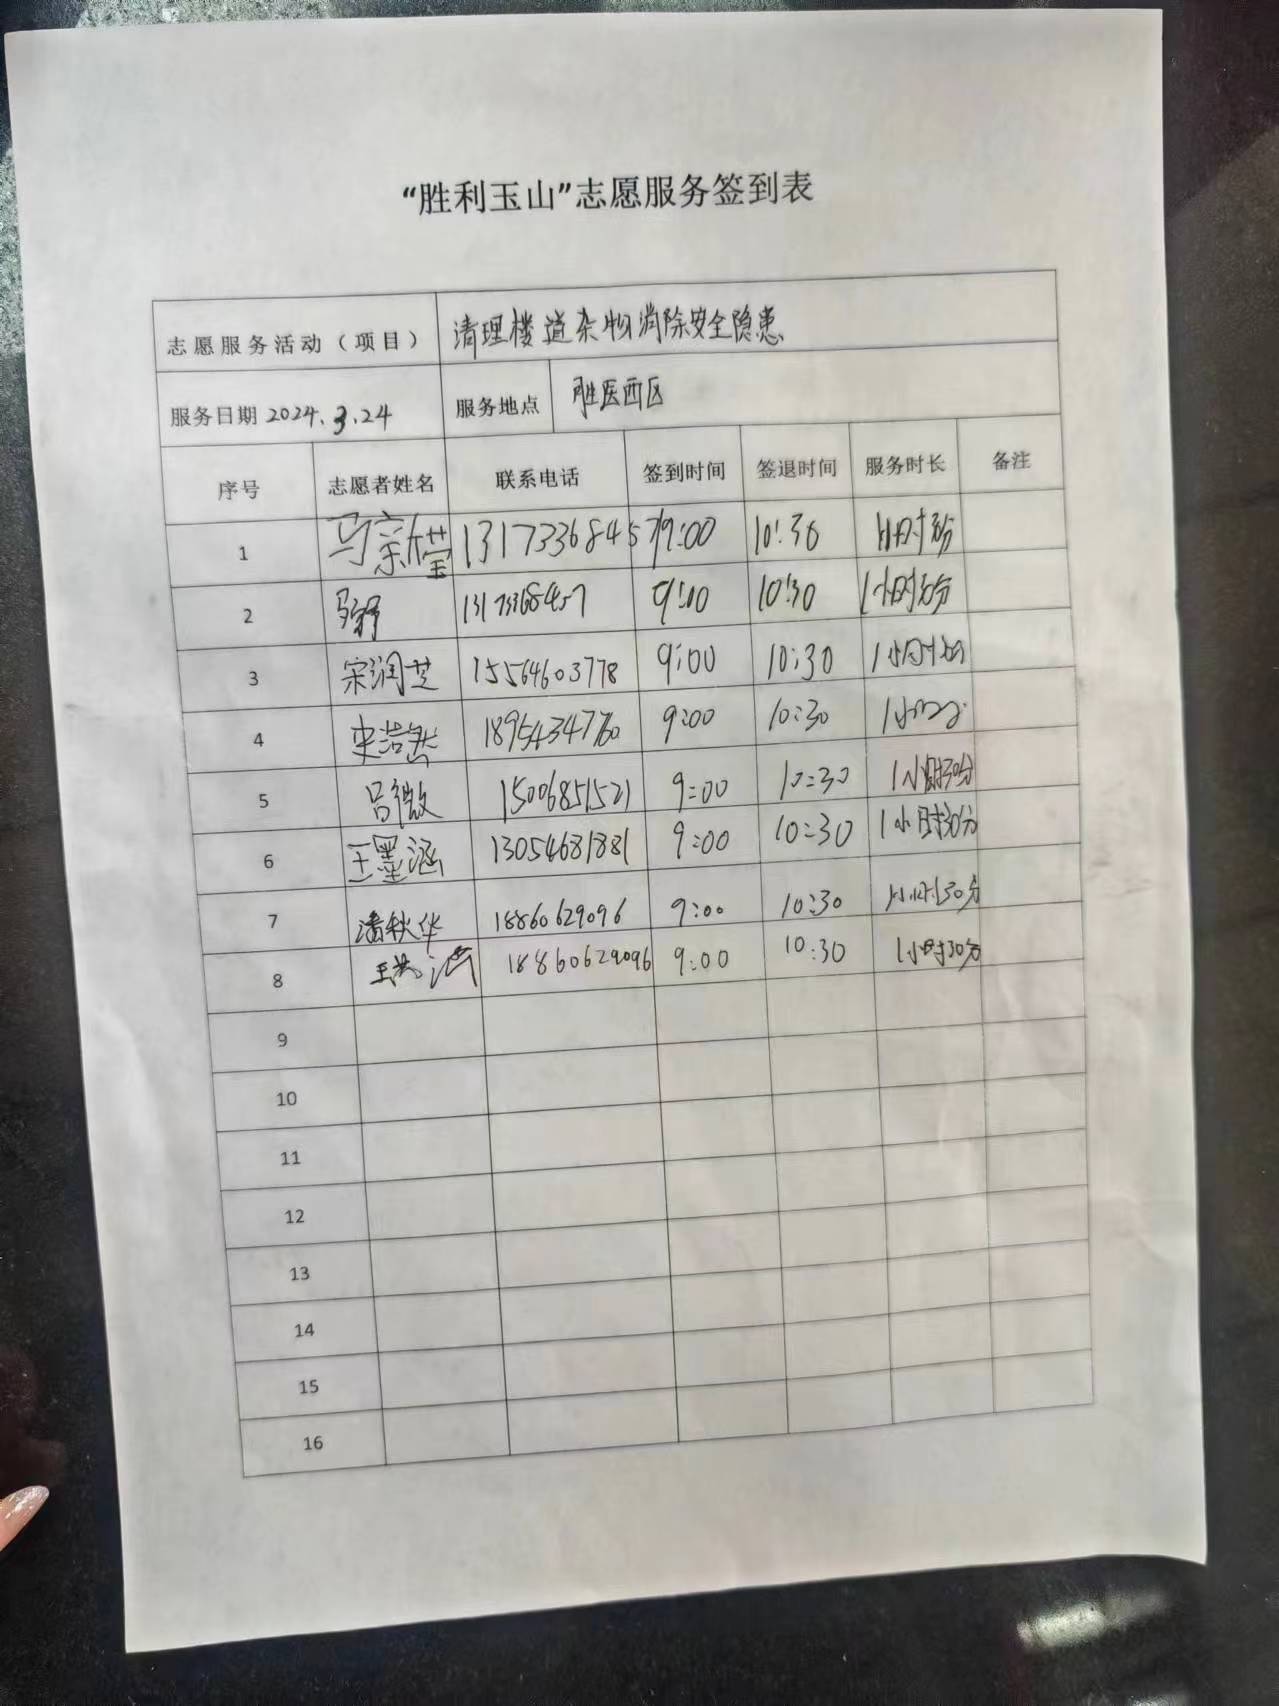 “胜利玉山”志愿服务签到表
志愿服务活动（项目） 清理楼道杂物消除安全隐患
服务日期 2024.3.24 服务地点 胜医西区
序号 志愿者姓名 联系电话 签到时间 签退时间 服务时长 备注
1 马宗莹 13173368457 9:00 10:30 1小时30分
2 13173368457 9:00 10:30 1小时30分
3 宋润芝 15564603778 9:00 10:30 1小时30分
4 史浩然 18954347760 9:00 10:30 1小时
5 吕微 15006851521 9:00 10:30 1小时30分
6 王墨涵 13054681881 9:00 10:30 1小时30分
7 潘秋华 18860629096 9:00 10:30 1小时30分
8 18860629096 9:00 10:30 1小时30分
9
10
11
12
13
14
15
16